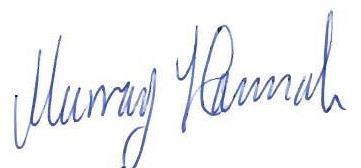 Murray Hannah